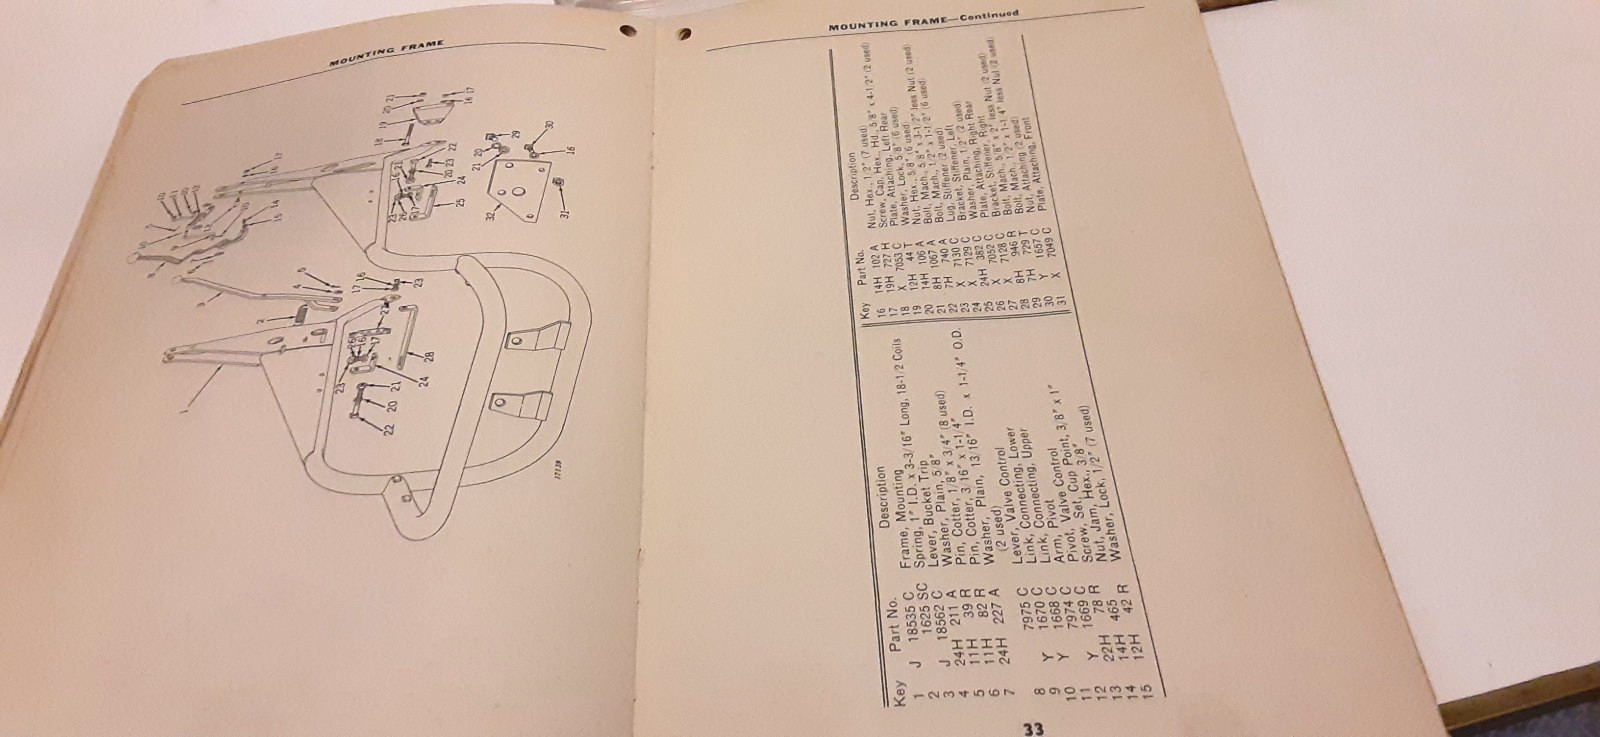 MOUNTING FRAME
17739
MOUNTING FRAME—Continued
Key Part No. Description
1 J 18535 C Frame, Mounting
2 1625 SC Spring, 1" I.D. x 3-3/16" Long, 18-1/2 Coils
3 J 18562 C Lever, Bucket Trip
4 24H 211 A Washer, Plain, 5/8"
5 11H 39 R Pin, Cotter, 1/8" x 3/4" (8 used)
6 11H 82 R Pin, Cotter, 3/16" x 1-1/4"
7 24H 227 A Washer, Plain, 13/16" I.D. x 1-1/4" O.D.
(2 used)
8 7975 C Lever, Valve Control
9 Y 1670 C Link, Connecting, Lower
10 Y 1668 C Link, Connecting, Upper
11 7974 C Arm, Pivot
12 Y 1669 C Pivot, Valve Control
13 22H 78 R Screw, Set, Cup Point, 3/8" x 1"
14 14H 465 Nut, Jam, Hex., 3/8"
15 12H 42 R Washer, Lock, 1/2" (7 used)
Key Part No. Description
16 14H 102 A Nut, Hex., 1/2" (7 used)
17 19H 727 H Screw, Cap, Hex., Hd., 5/8" x 4-1/2" (2 used)
18 X 7053 C Plate, Attaching, Left Rear
19 12H 44 T Washer, Lock, 5/8" (6 used)
20 14H 106 A Nut, Hex., 5/8" (6 used)
21 8H 1067 A Bolt, Mach., 5/8" x 3-1/2" less Nut (2 used)
22 7H 740 A Bolt, Mach., 1/2" x 1-1/2" (6 used)
23 X 7130 C Lug, Stiffener (2 used)
24 X 7129 C Bracket, Stiffener, Left
25 24H 382 C Washer, Plain, 1/2" (2 used)
26 X 7052 C Plate, Attaching, Right Rear
27 X 7128 C Bracket, Stiffener, Right
28 8H 946 R Bolt, Mach., 5/8" x 2" less Nut (2 used)
29 7H 729 T Bolt, Mach., 1/2" x 1-1/4" less Nut (2 used)
30 Y 1657 C Nut, Attaching (2 used)
31 X 7049 C Plate, Attaching, Front
33